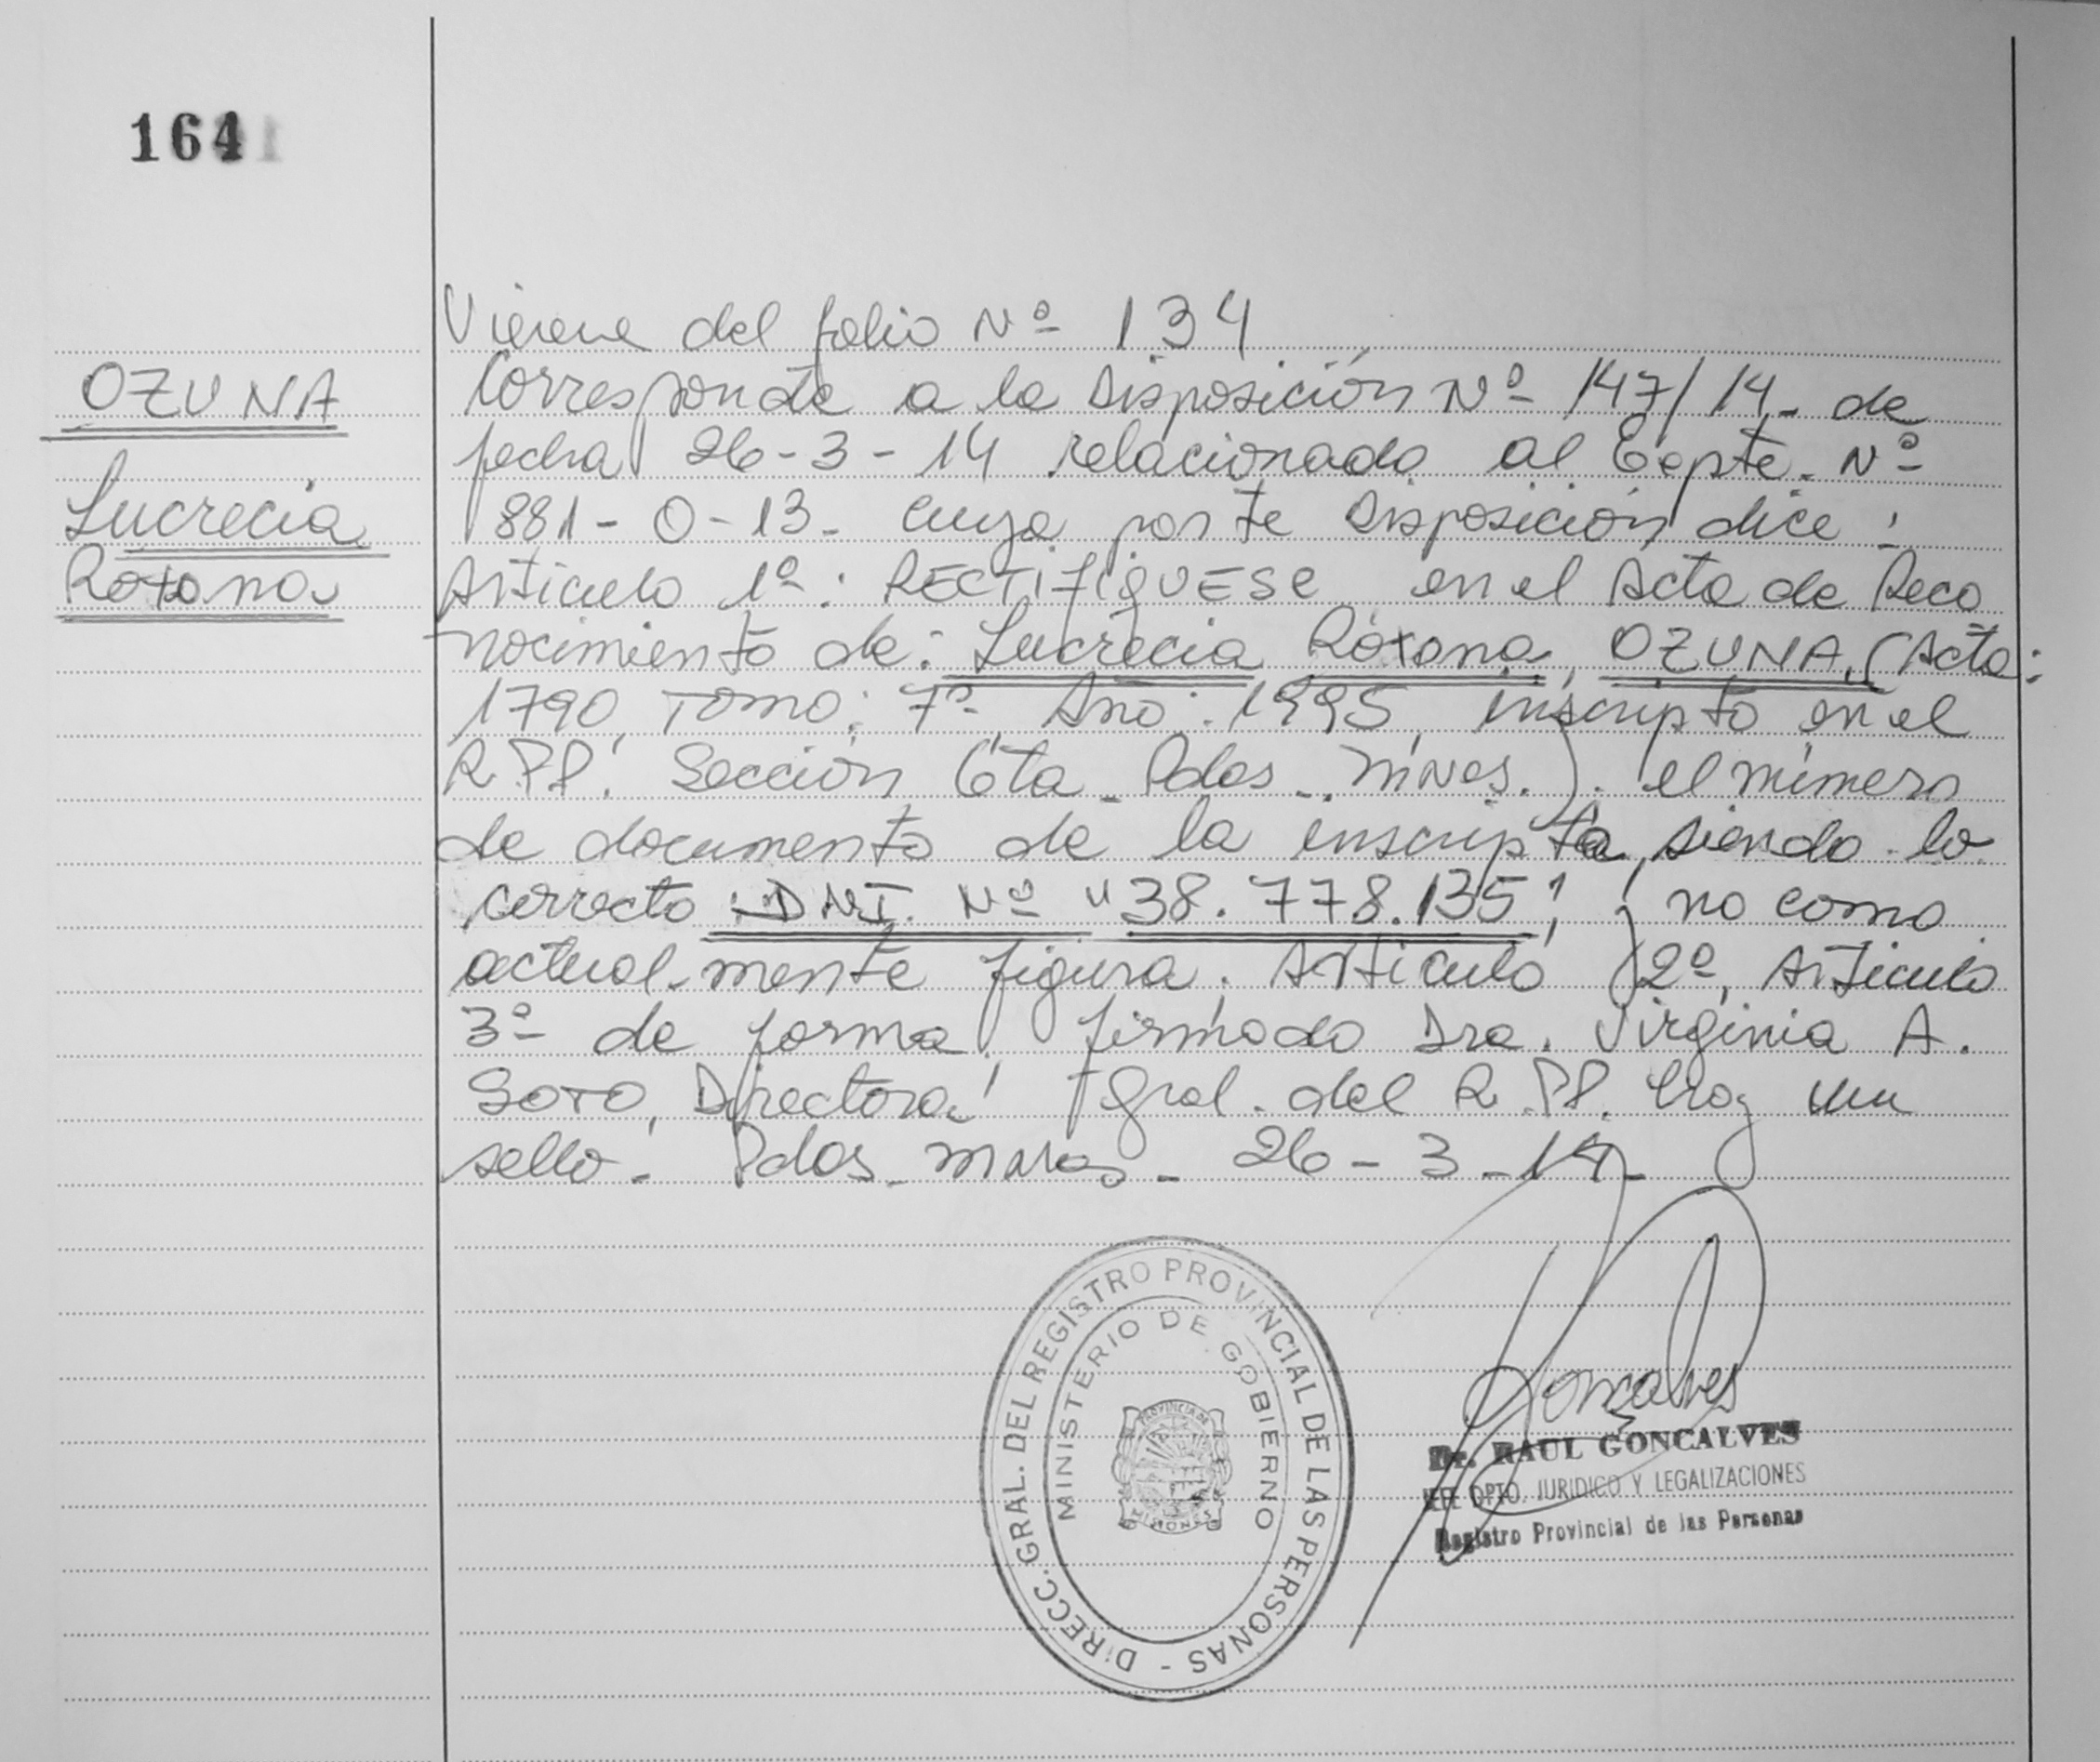 164
OZUNA
Lucrecia
Roxana
Viene del folio Nº 134
Corresponde a la Disposición Nº 147/14- de
fecha 26-3-14 relacionado al Expte. Nº
881-O-13- cuya parte Disposición dice:
Articulo 1º: RECTIFIQUESE en el Acta de Reco
nocimiento de: Lucrecia Roxana OZUNA, (Acta:
1790, Tomo: 7º- Año: 1995, inscripto en el
R.P.P. Sección 6ta- Pdas- Mnes.). el número
de documento de la inscripta, siendo lo
correcto: DNI. Nº "38.778.135", no como
actual-mente figura. Articulo 2º, Articulo
3º- de forma. firmado Dra. Virginia A.
SOTO, Directora Gral. del R.P.P. Hay un
sello- Pdas- - 26-3-14-
DIRECC. GRAL. DEL REGISTRO PROVINCIAL DE LAS PERSONAS -
MINISTERIO DE GOBIERNO
PROVINCIA DE
MISIONES
Goncalves
Dr. RAUL GONCALVES
JEFE DPTO. JURIDICO Y LEGALIZACIONES
Registro Provincial de las Personas